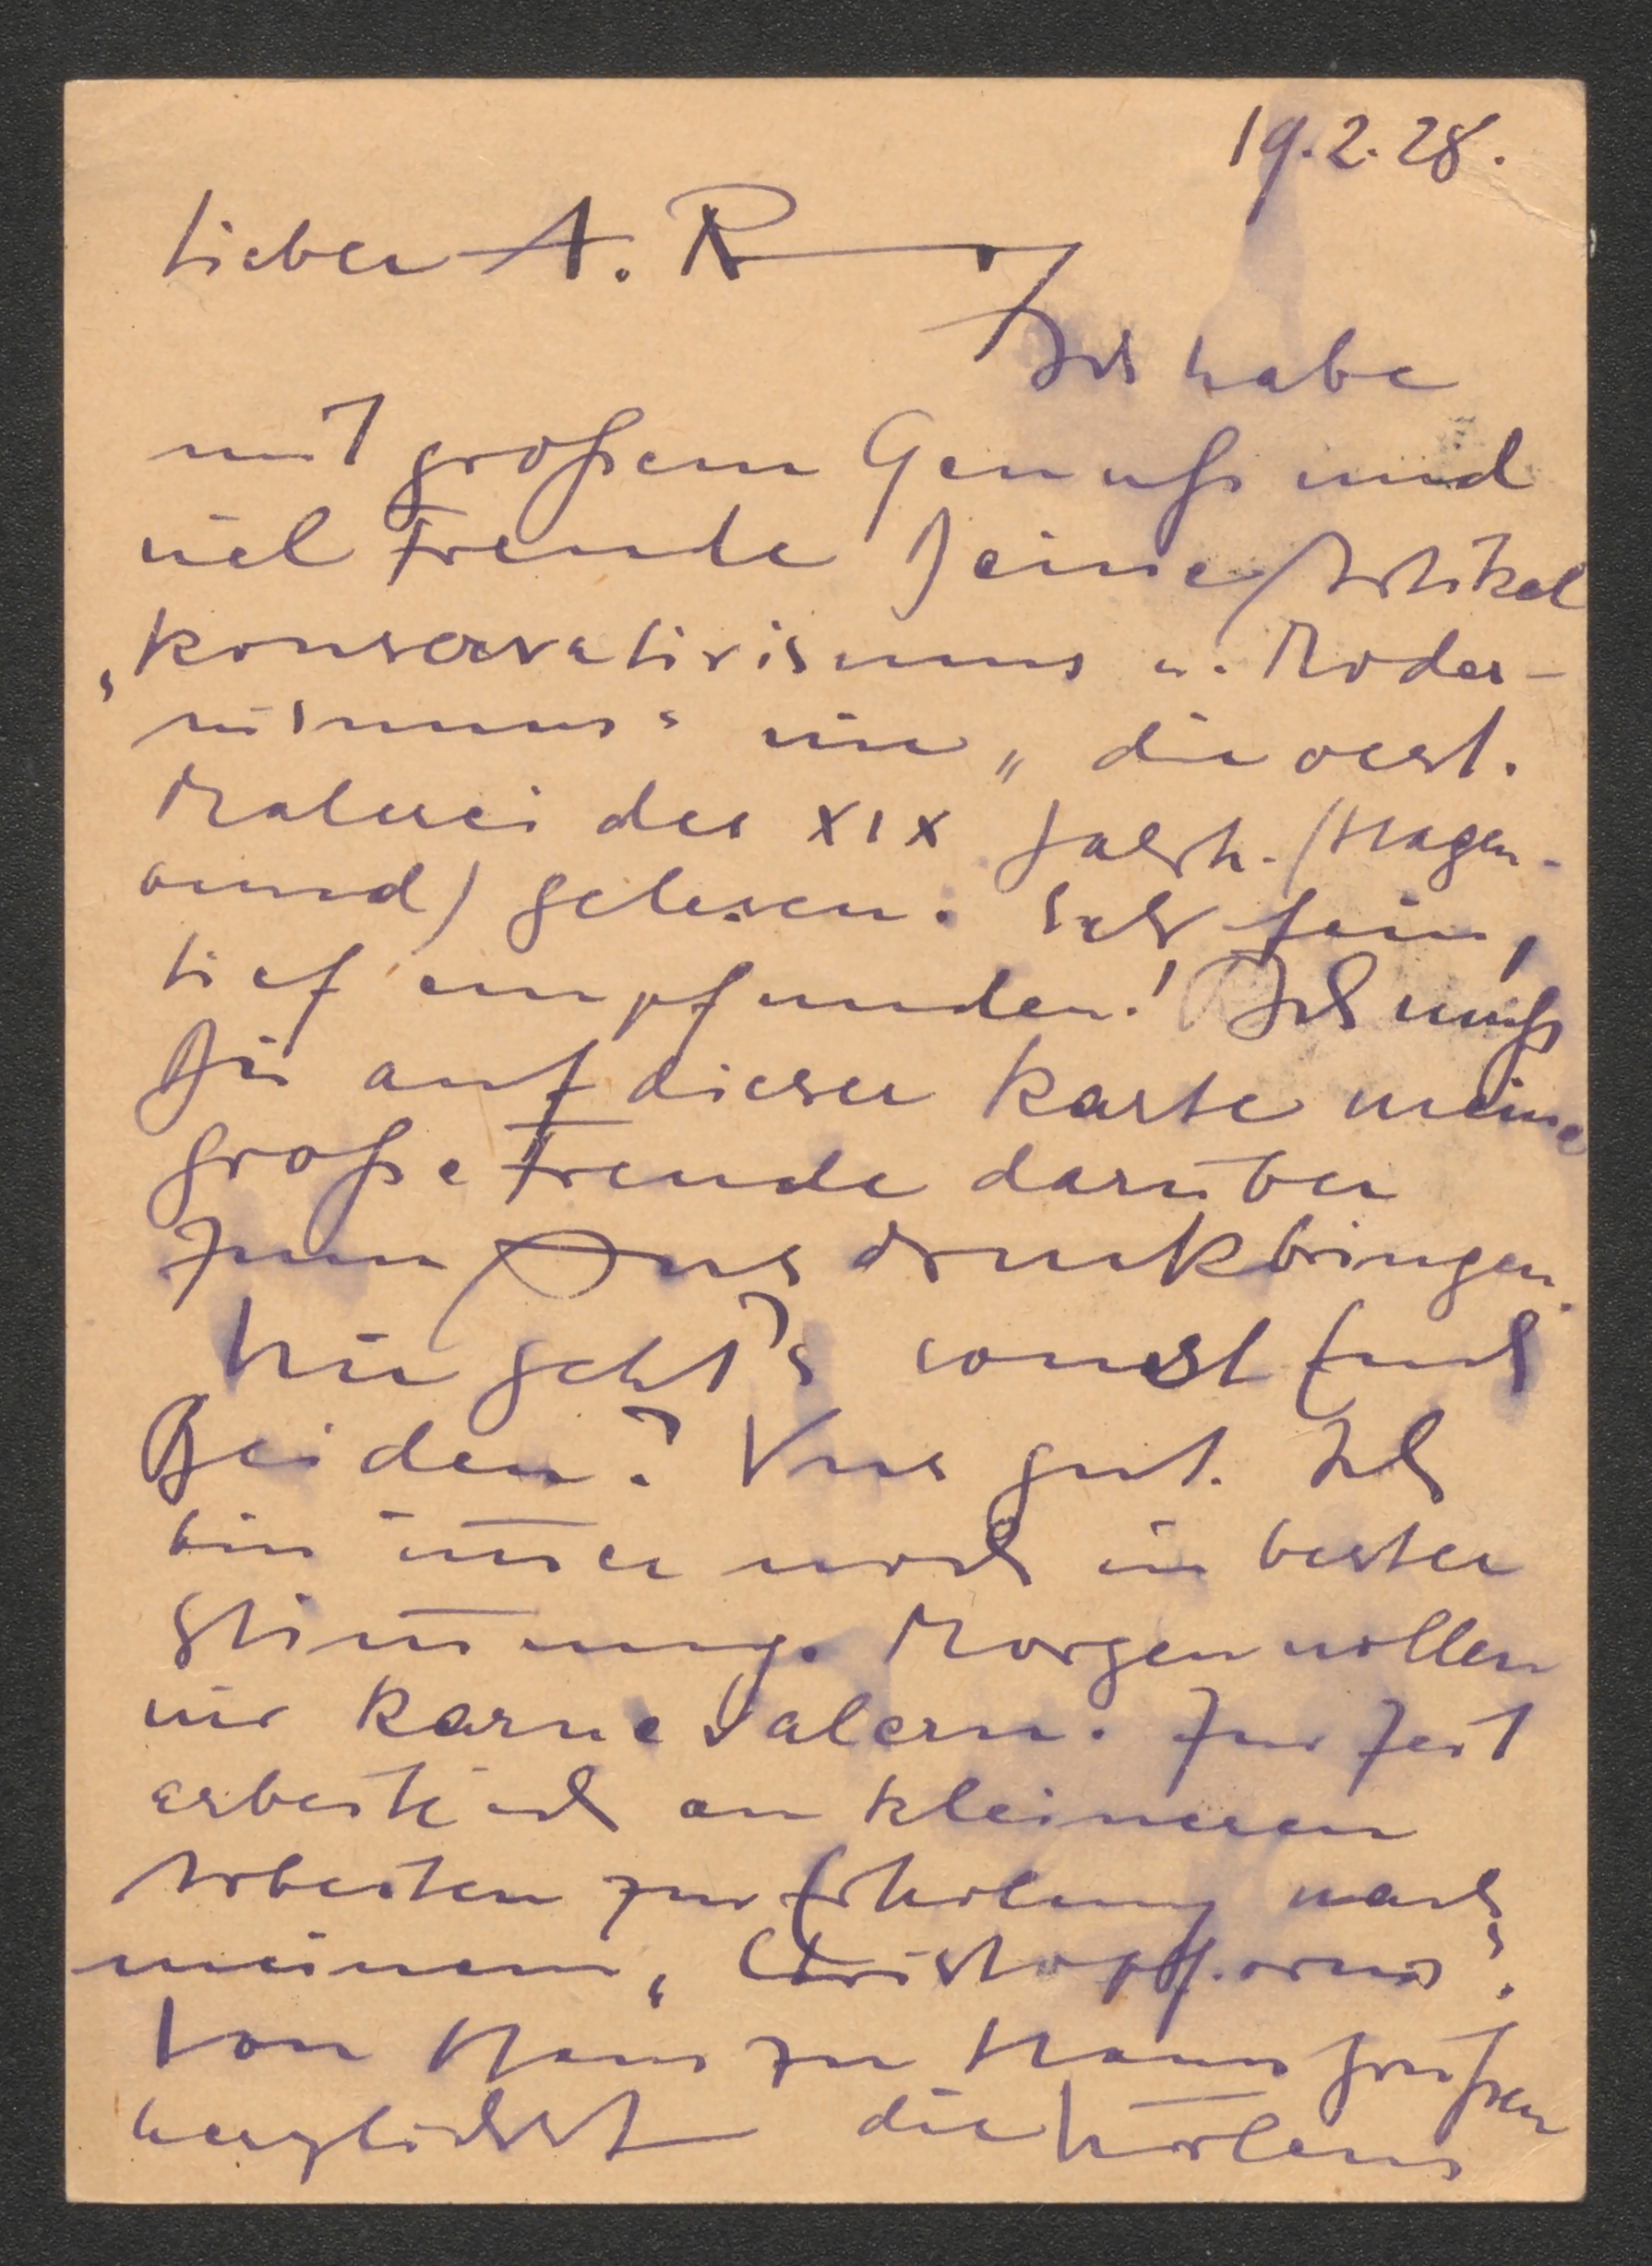 19.2.28.
Lieber A. R
Ich habe
mit großem Genuß und
viel Freude Deine Artikel
„Konservativismus u. Moder-
nismus“ wie „die oest.
Malerei des XIX Jahrh. (Hagen-
bund) gelesen. Sehr fein,
tief empfunden! Ich muß
Dir auf dieser Karte meine
große Freude darüber
zum Ausdruck bringen.
Wie geht's sonst Euch
Beiden? Uns gut. Ich
bin im̅er noch in bester
Stim̅ung. Morgen wollen
wir karnevalern. Zur Zeit
arbeite ich an kleineren
Arbeiten zur Erholung nach
meinem „Christophorus“.
Von Haus zu Haus grüßen
herzlichst die